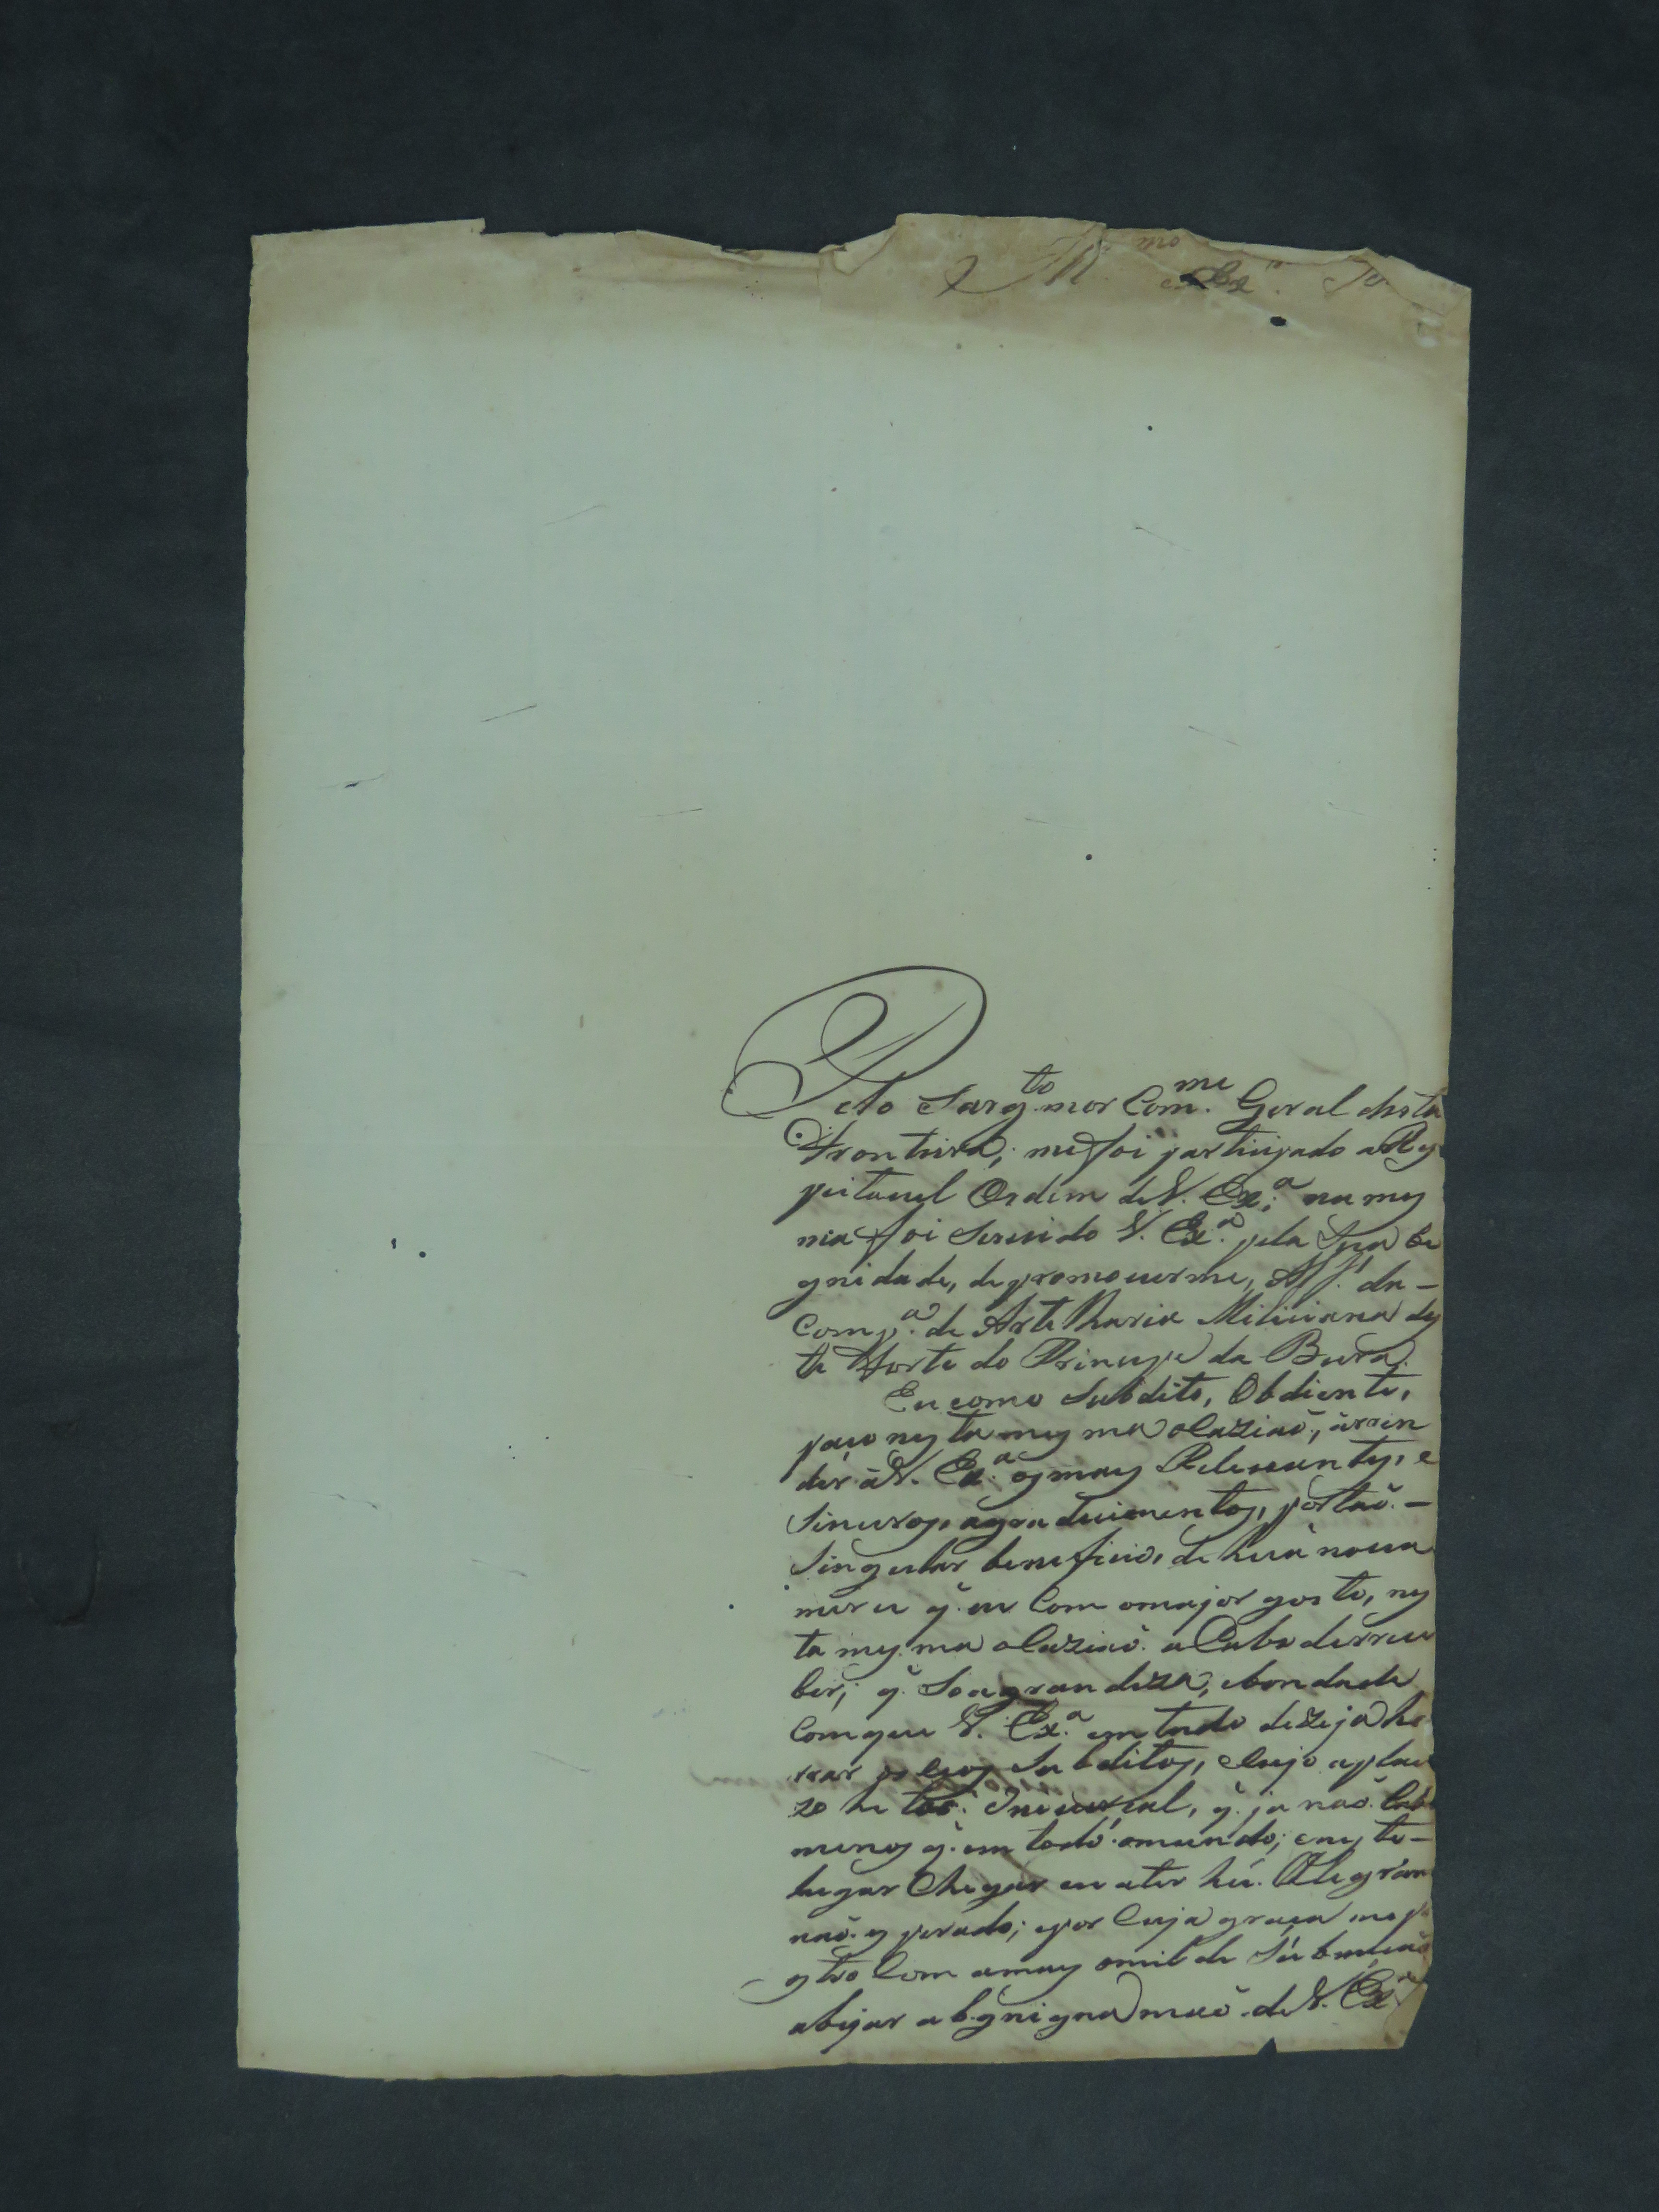 Ill.mo Ex.mo
Pelo Sarg.to mor Com.me Geral desta
Fronteira, me foi partiçipado a Res
peitauel Ordem de V. Ex.a na mes
ma foi Seruido V. Ex.a pela Sua be
gnidade, de promouerme, Alf.s da -
Comp.a de Artelharia Miliciana des
te Forte do Principe da Beira.
Eu como Subdito, Obdiente,
paço nesta mesma olaziaõ, arren
der a V. Ex.a os mais Releuantes, e
Sinceros, agradecimentos, por taõ -
Singular benefiçio, de huã noua
merce q̃ eu Com omajor gosto, nes
ta mesma olaziaõ acabo derreçe
ber; q̃ So agrandeza, ebondade
Comque V. Ex.a em tudo dezeja ho
rrar os seos Subditos, Cujo aplau
zo he taõ Universal, q̃ ja naõ Cabe
menos q̃ em todo omundo; e neste -
lugar Chegar eu ater hũ Alegraõ
naõ esperado; epor Cuja graça me p
ostro Com amais omilde Submiçaõ
abejar abegnigna maõ de V. Ex.a